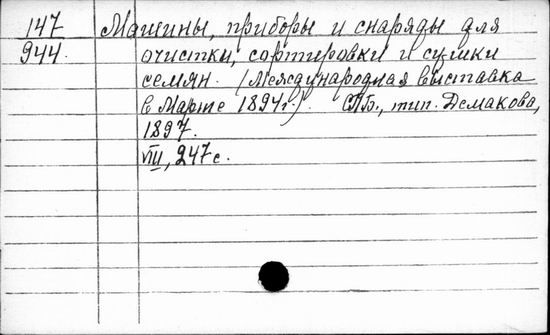 147 Машины, приборы и снаряды для
944. очистки, сортировки и сушки
семян. (Международная выставка
в Марте 1894 г.). СПб., тип. Демакова,
1897.
VIII, 247 с.